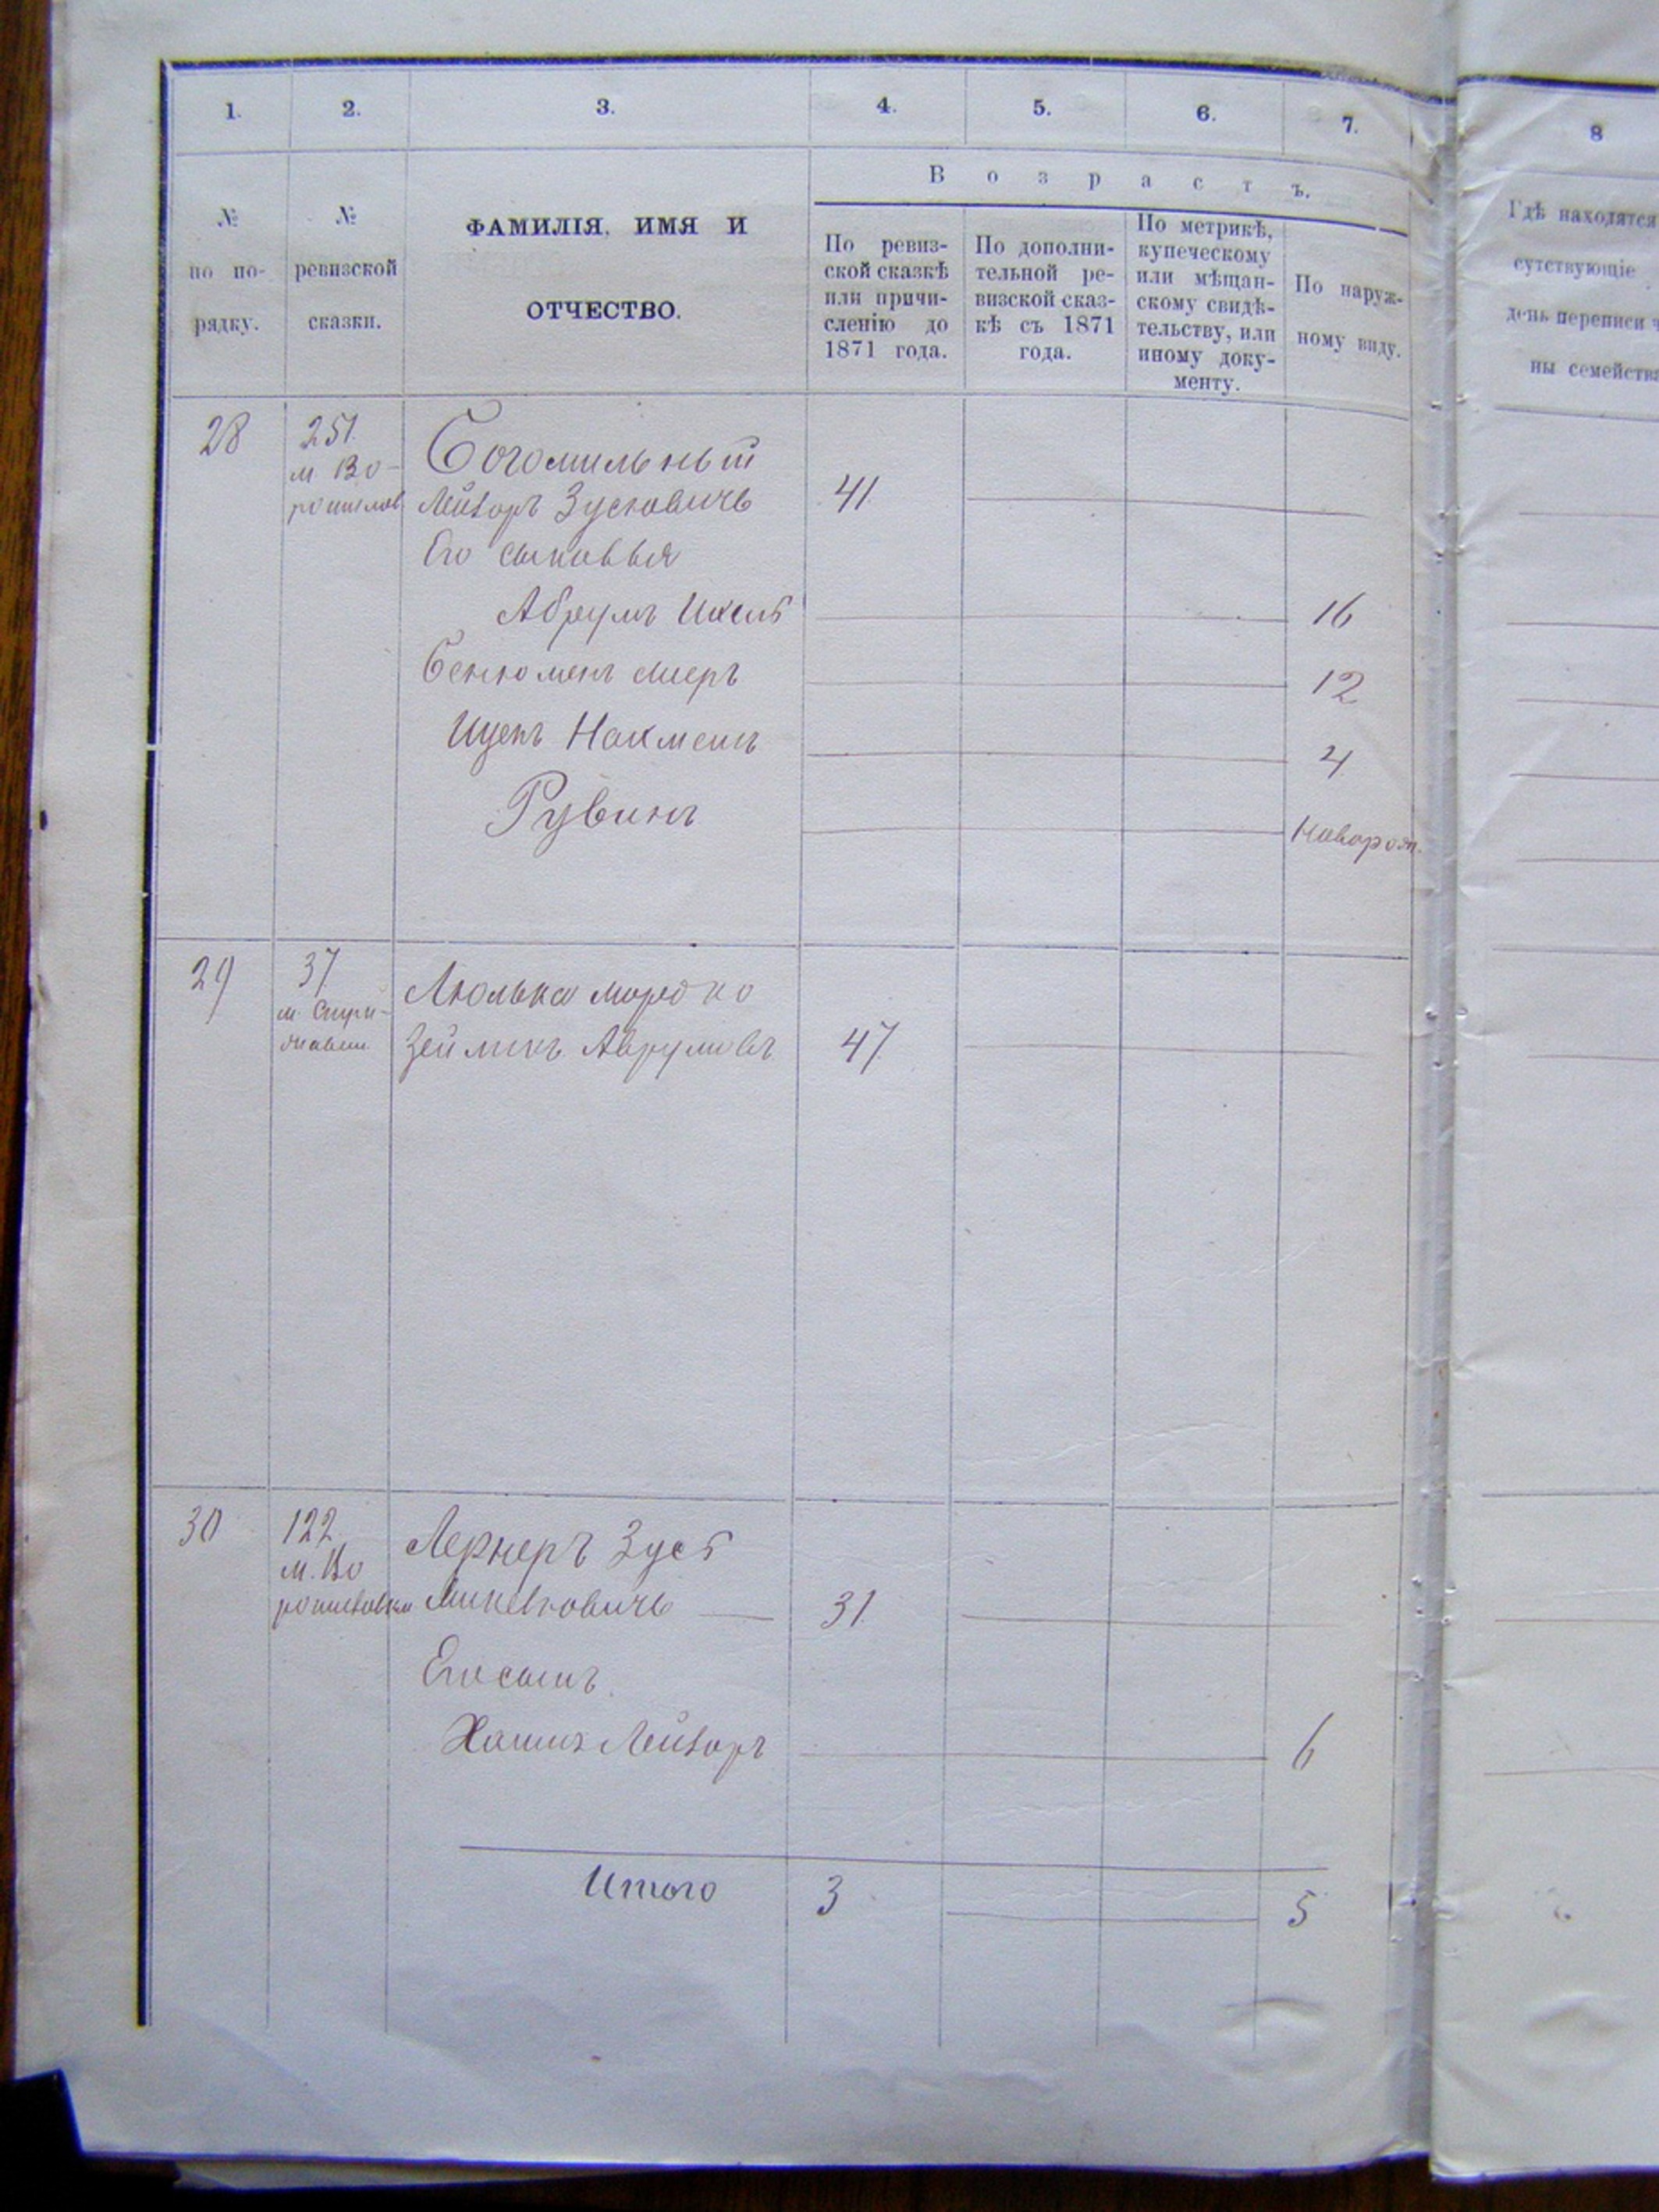 1. 2. 3. 4. 5. 6. 7. 8
В о з р а с т ъ.
№ по по-
рядку.
№
ревизской
сказки.
ФАМИЛІЯ, ИМЯ И
ОТЧЕСТВО.
По ревиз-
ской сказкѣ
или причи-
сленію до
1871 года.
По дополни-
тельной ре-
визской сказ-
кѣ съ 1871
года.
По метрикѣ,
купеческому
или мѣщан-
скому свидѣ-
тельству, или
иному доку-
менту.
По наруж-
ному виду.
Гдѣ находятся
сутствующіе
день переписи ч
ны семейства
28 251. Богомильный
м. Во-
рошилов. Лейзоръ Зусковичъ 41
Его сыновья
Абрумъ Ихель 16
Бенюменъ Мееръ 12
Ицекъ Нахменъ 4
РувинъНоворож.
29 37 Люлька Мордко
м.
Зейликъ Аврумовъ 47
30 122 Лернеръ Зусь
м. Во
рошиловки 31
Его сынъ.
Хаимъ Лейзоръ 6
Итого 3 5